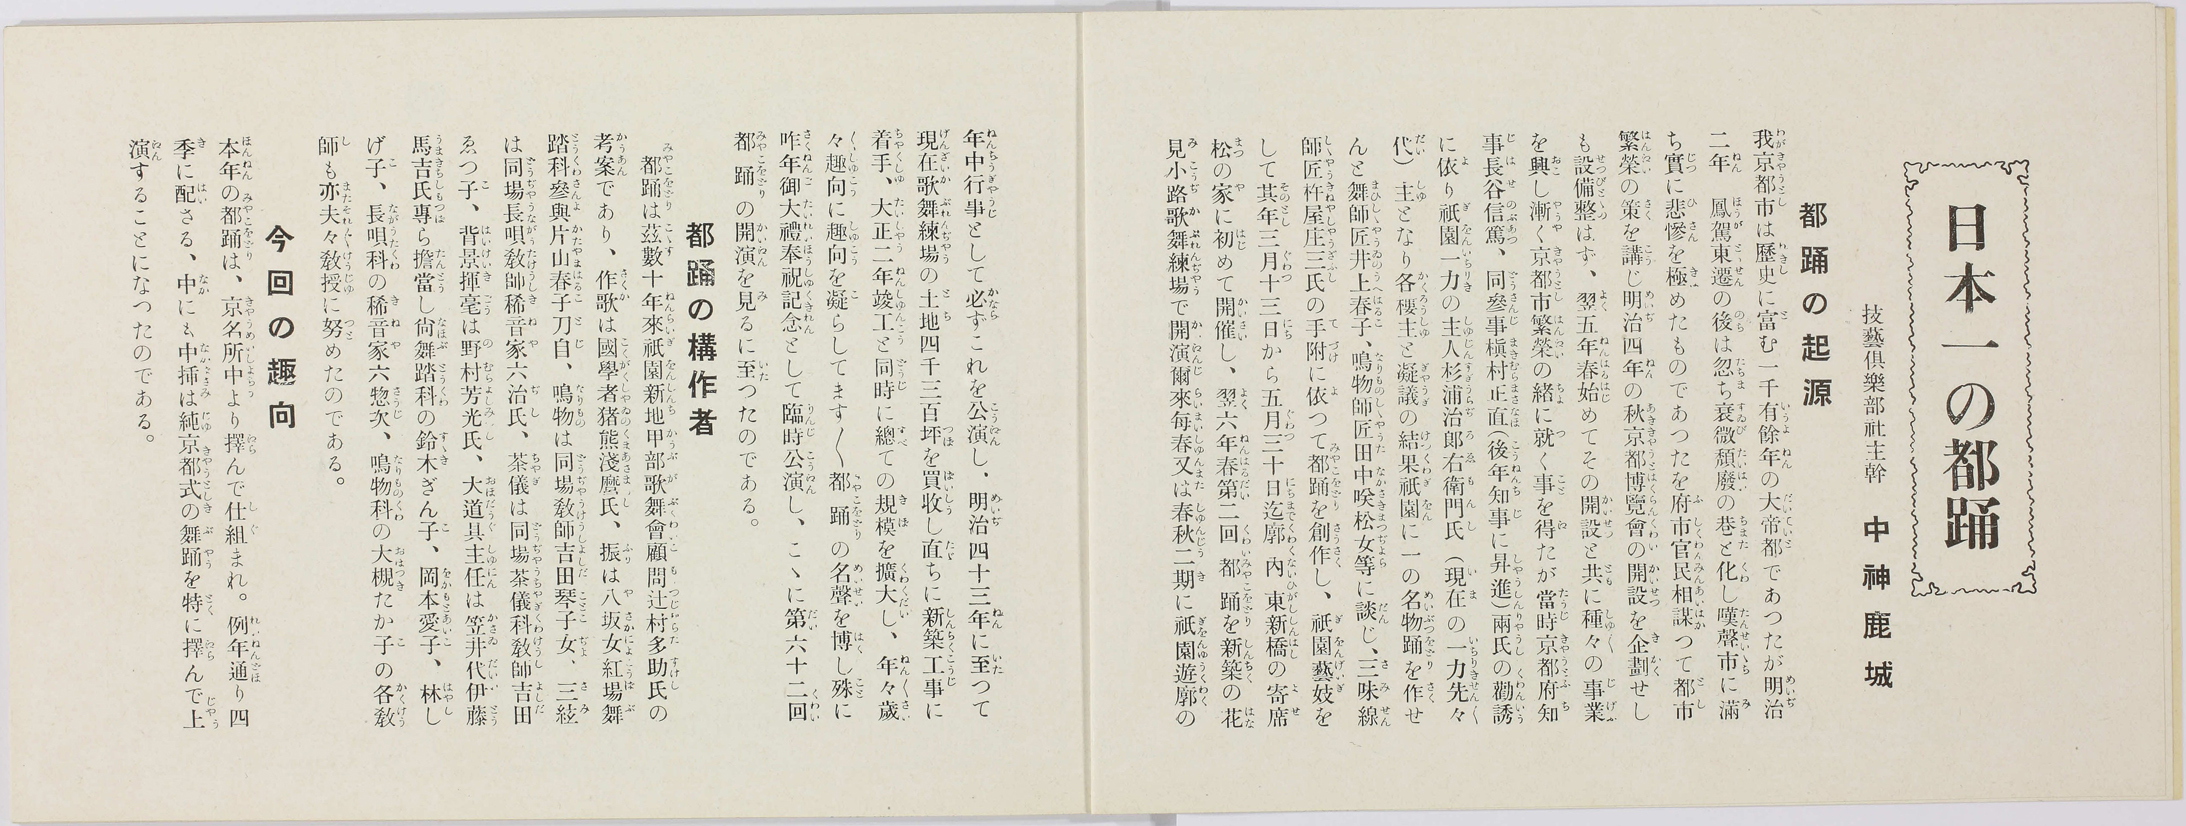 日本一の都踊
技藝倶樂部社主幹　中神鹿城
都踊の起源
我京都市は歷史に富む一千有餘年の大帝都であつたが明治
二年　鳳駕東遷の後は忽ち衰微頽廢の巷と化し嘆聲市に滿
ち實に悲慘を極めたものであつたを府市官民相謀つて都市
繁榮の策を講じ明治四年の秋京都博覽會の開設を企劃せし
も設備整はず、翌五年春始めてその開設と共に種々の事業
を興し漸く京都市繁榮の緒に就く事を得たが當時京都府知
事長谷信篤、同參事槇村正直（後年知事に昇進）兩氏の勸誘
に依り祇園一力の主人杉浦治郎右衞門氏（現在の一力先々
代）主となり各樓主と凝議の結果祇園に一の名物踊を作せ
んと舞師匠井上春子、鳴物師匠田中咲松女等に談じ、三味線
師匠杵屋庄三氏の手附に依つて都踊を創作し、祇園藝妓を
して其年三月十三日から五月三十日迄廓內東新橋の寄席
松の家に初めて開催し、翌六年春第二回都踊を新築の花
見小路歌舞練場で開演爾來每春又は春秋二期に祇園遊廓の
年中行事として必ずこれを公演し、明治四十三年に至つて
現在歌舞練場の土地四千三百坪を買收し直ちに新築工事に
着手、大正二年竣工と同時に總ての規模を擴大し、年々歲
々趣向に趣向を凝らしてます〱都踊の名聲を博し殊に
昨年御大禮奉祝記念として臨時公演し、こゝに第六十二回
都踊の開演を見るに至つたのである。
都踊の構作者
都踊は茲數十年來祇園新地甲部歌舞會顧問辻村多助氏の
考案であり、作歌は國學者猪熊淺麿氏、振は八坂女紅場舞
踏科參與片山春子刀自、鳴物は同場敎師吉田琴子女、三絃
は同場長唄敎師稀音家六治氏、茶儀は同場茶儀科敎師吉田
ゑつ子、背景揮毫は野村芳光氏、大道具主任は笠井代伊藤
馬吉氏專ら擔當し尙舞踏科の鈴木ぎん子、岡本愛子、林し
げ子、長唄科の稀音家六惣次、鳴物科の大槻たか子の各敎
師も亦夫々敎授に努めたのである。
今回の趣向
本年の都踊は、京名所中より擇んで仕組まれ。例年通り四
季に配さる、中にも中揷は純京都式の舞踊を特に擇んで上
演することになつたのである。